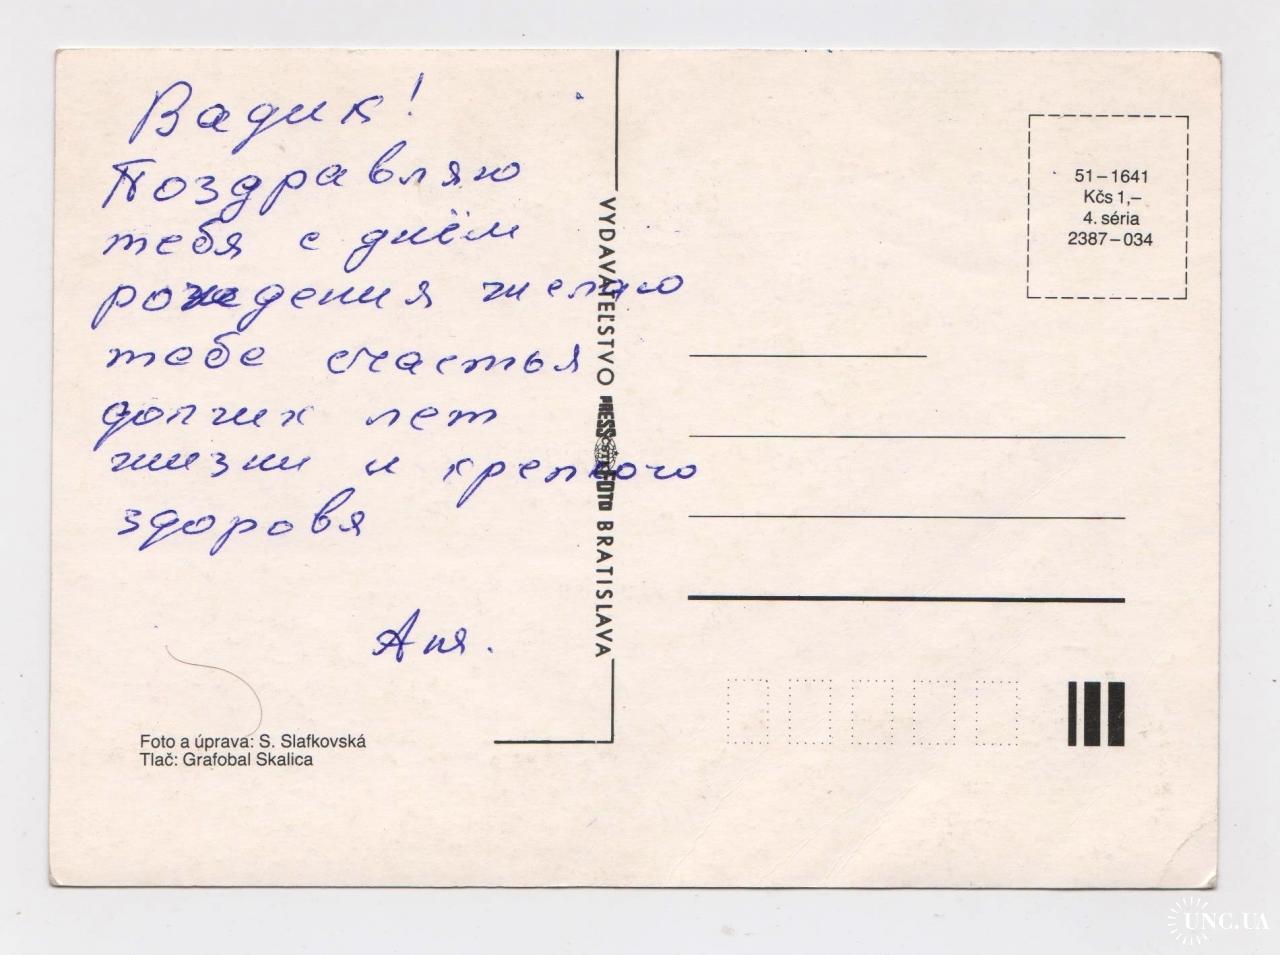 Вадик!
Поздравляю
тебя с днём
рождения желаю
тебе счастья
долгих лет
жизни и крепкого
здоровя
Аня.
Foto a úprava: S. Slafkovská
Tlač: Grafobal Skalica
VYDAVATEĽSTVO PRESSFOTO BRATISLAVA
51–1641
Kčs 1,–
4. séria
2387–034
UNC.UA